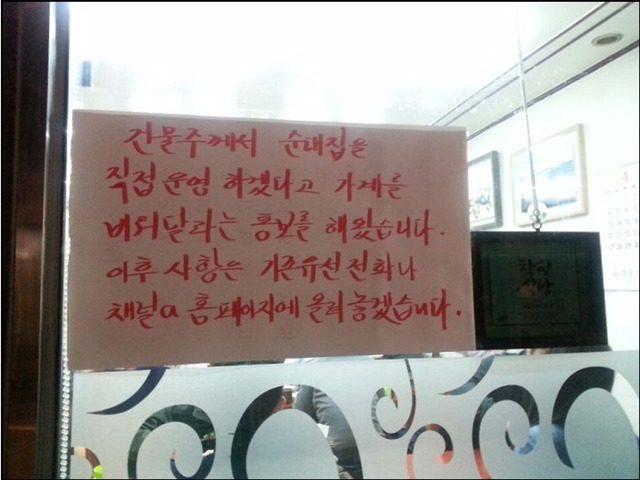 건물주께서 순대집을
직접운영 하겠다고 가게를
비워달라는 통보를 해왔습니다.
이후 사항은 기존유선전화나
채널a 홈페이지에 올려놓겠습니다.
착한
식당
4